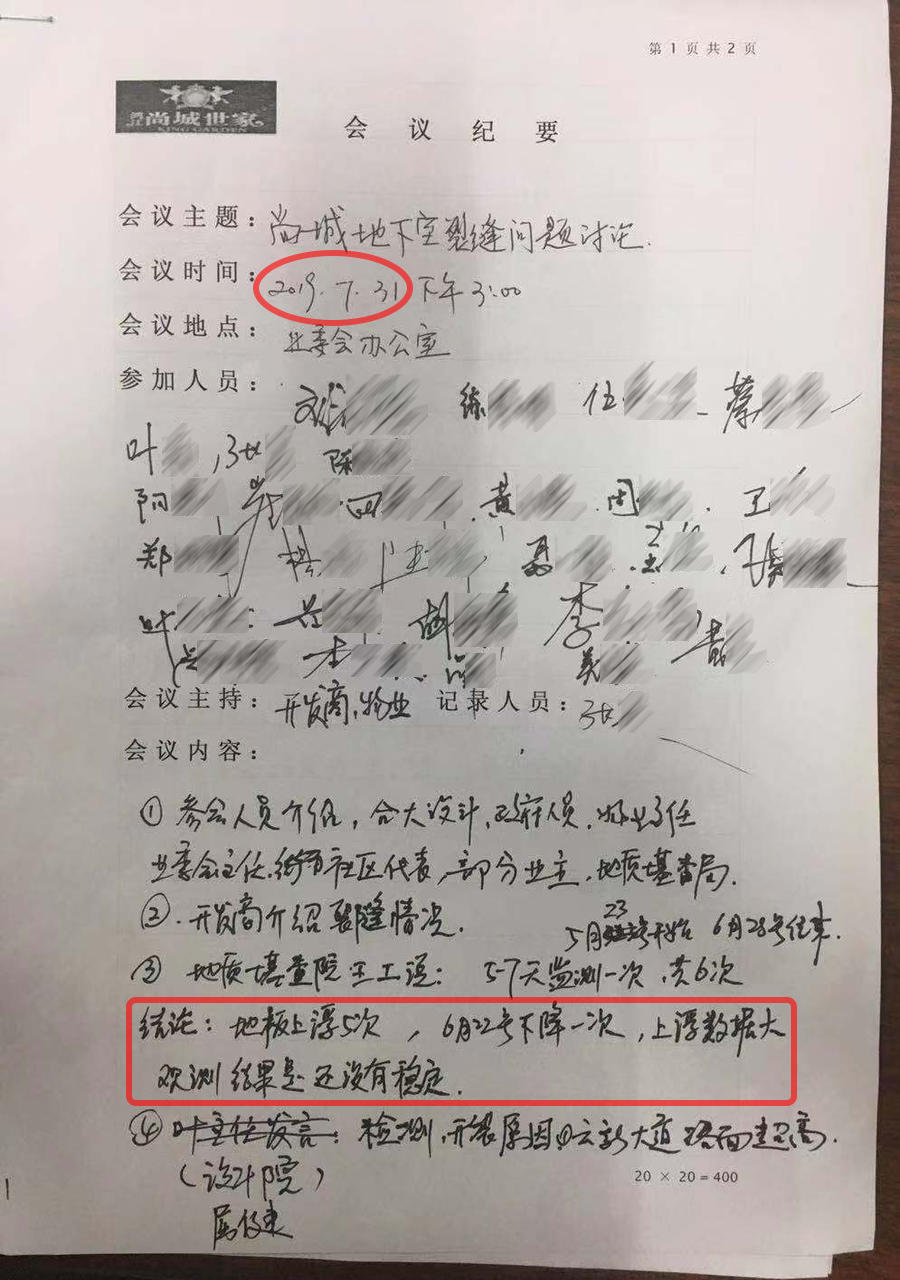 第 1 页 共 2 页
尚城世家
KING GARDEN
会 议 纪 要
会议主题：尚城地下室裂缝问题讨论.
会议时间：2019.7.31 下午3:00
会议地点：业委会办公室
参加人员：刘 练 伍 蔡
叶 张 陈
阳 四 黄 周 王
郑 杨 聂
叶 胡 李
会议主持：开发商、物业 记录人员：张
会议内容：
① 参会人员介绍，合大设计，政府人员，
业委会主任，街道社区代表，部分业主，地质堪查局.
② 开发商介绍裂缝情况.
5月23号开始 6月28号结束.
③ 地质堪查院王工说： 5-7天监测一次，共6次
结论：地板上浮5次，6月22号下降一次，上浮数据大
观测结果是还没有稳定.
④ 叶主任发言：检测，开裂原因①云新大道路面超高.
（设计院）
20 × 20 = 400